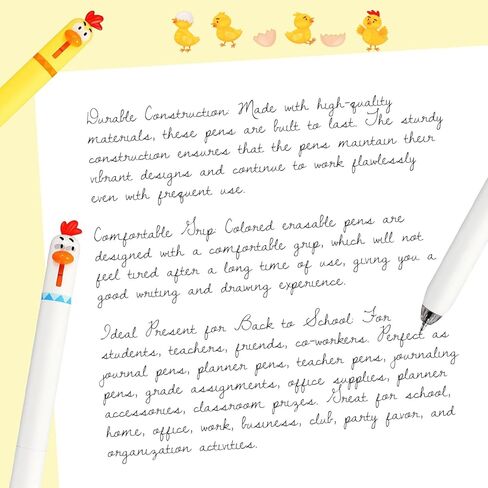 Durable Construction: Made with high-quality
materials, these pens are built to last. The sturdy
construction ensures that the pens maintain their
vibrant designs and continue to work flawlessly
even with frequent use.
Comfortable Grip: Colored erasable pens are
designed with a comfortable grip, which will not
feel tired after a long time of use, giving you a
good writing and drawing experience.
Ideal Present for Back to School For
students, teachers, friends, co-workers. Perfect as
journal pens, planner pens, teacher pens, journaling
pens, grade assignments, office supplies, planner
accessories, classroom prizes. Great for school,
home, office, work, business, club, party favor, and
organization activities.